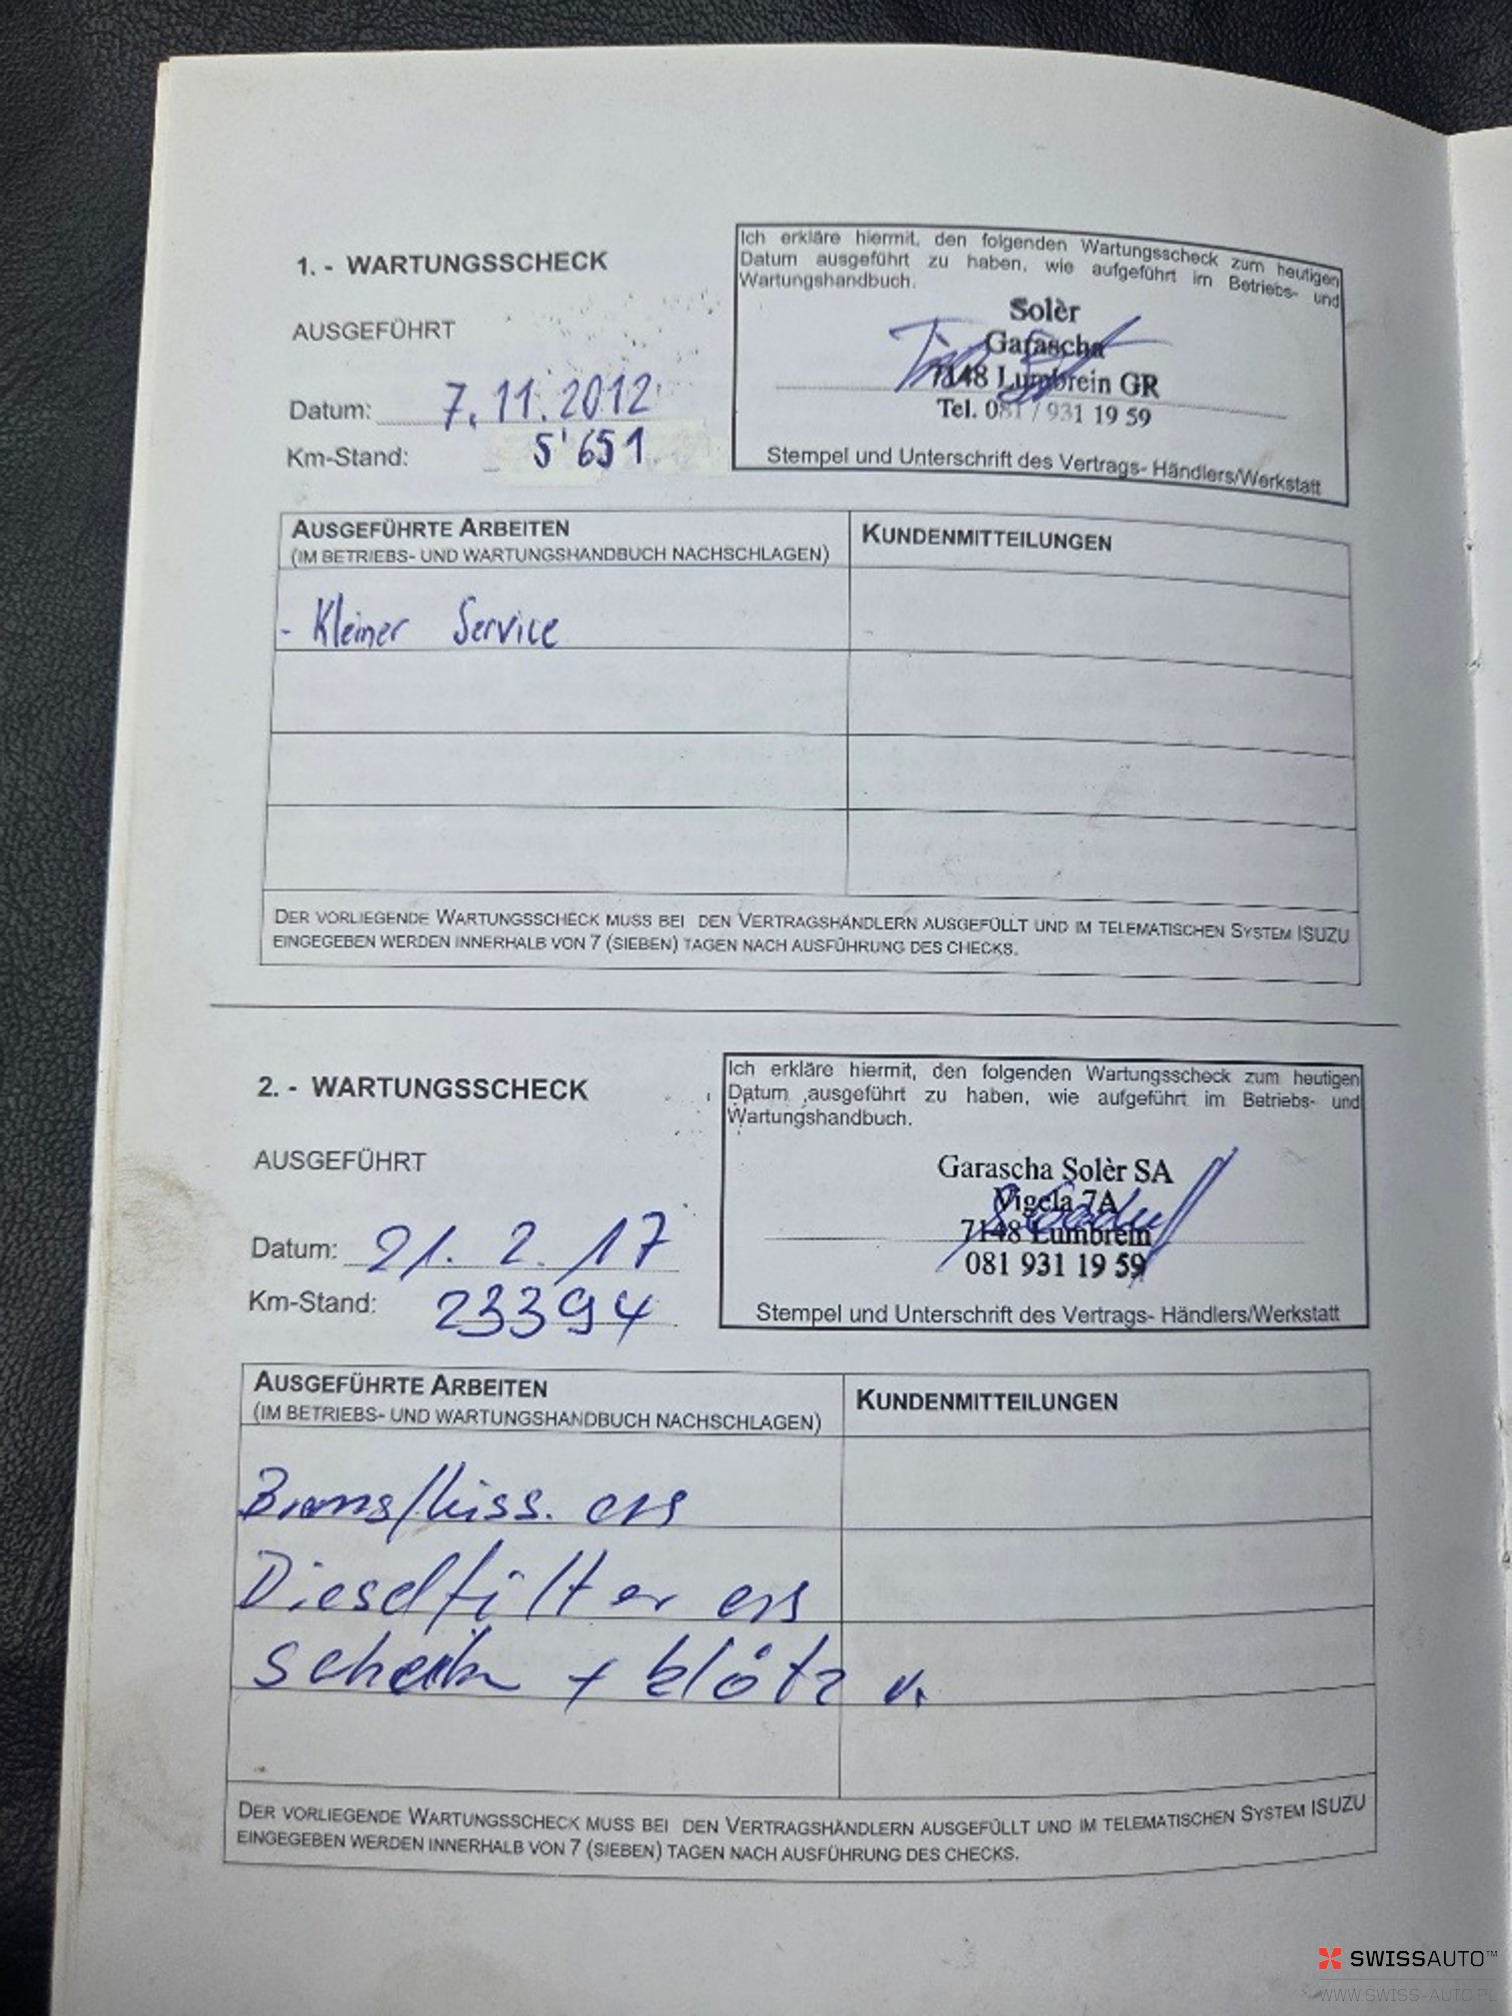 1. - WARTUNGSSCHECK
AUSGEFÜHRT
Datum: 7.11.2012
Km-Stand: 5'651
Ich erkläre hiermit, den folgenden Wartungsscheck zum heutigen
Datum ausgeführt zu haben, wie aufgeführt im Betriebs- und
Wartungshandbuch.
Solèr
Garascha
7148 Lumbrein GR
Tel. 081 / 931 19 59
Stempel und Unterschrift des Vertrags- Händlers/Werkstatt
AUSGEFÜHRTE ARBEITEN
(IM BETRIEBS- UND WARTUNGSHANDBUCH NACHSCHLAGEN)
KUNDENMITTEILUNGEN
- Kleiner Service
DER VORLIEGENDE WARTUNGSSCHECK MUSS BEI DEN VERTRAGSHÄNDLERN AUSGEFÜLLT UND IM TELEMATISCHEN SYSTEM ISUZU
EINGEGEBEN WERDEN INNERHALB VON 7 (SIEBEN) TAGEN NACH AUSFÜHRUNG DES CHECKS.
2. - WARTUNGSSCHECK
AUSGEFÜHRT
Datum: 21. 2. 17
Km-Stand: 23394
Ich erkläre hiermit, den folgenden Wartungsscheck zum heutigen
Datum ausgeführt zu haben, wie aufgeführt im Betriebs- und
Wartungshandbuch.
Garascha Solèr SA
Vigela 7A
7148 Lumbrein
081 931 19 59
Stempel und Unterschrift des Vertrags- Händlers/Werkstatt
AUSGEFÜHRTE ARBEITEN
(IM BETRIEBS- UND WARTUNGSHANDBUCH NACHSCHLAGEN)
KUNDENMITTEILUNGEN
Bremsflüss. ers
Dieselfilter ers
+ klötz v.
DER VORLIEGENDE WARTUNGSSCHECK MUSS BEI DEN VERTRAGSHÄNDLERN AUSGEFÜLLT UND IM TELEMATISCHEN SYSTEM ISUZU
EINGEGEBEN WERDEN INNERHALB VON 7 (SIEBEN) TAGEN NACH AUSFÜHRUNG DES CHECKS.
SWISSAUTO™
WWW.SWISS-AUTO.PL